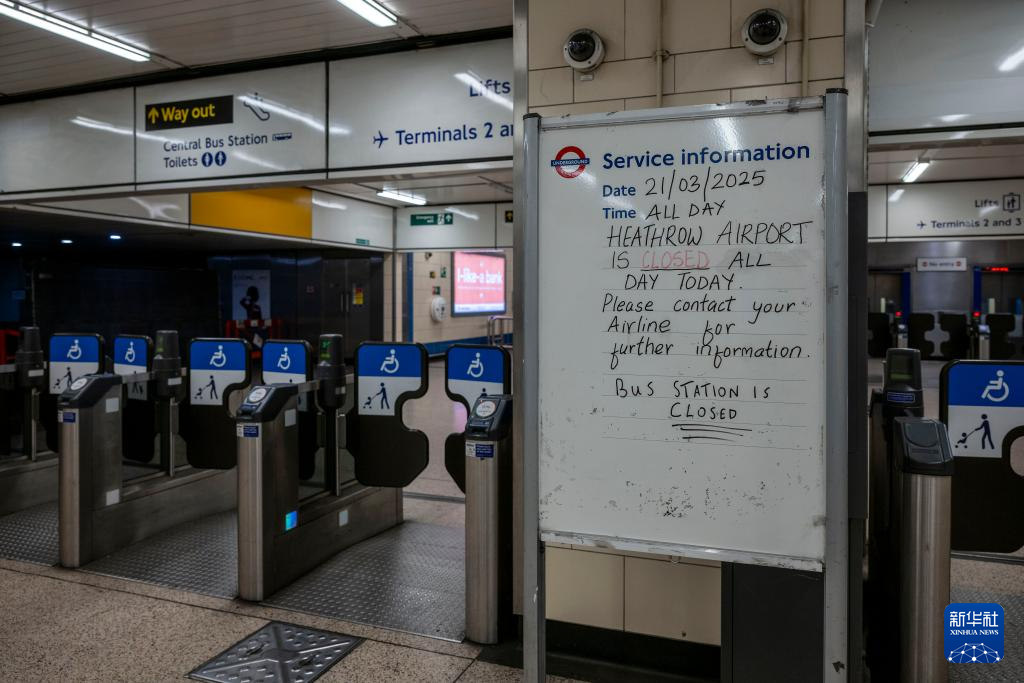 Way out
Central Bus Station
Toilets
Lifts
Terminals 2 a
Emergency exit
I-like-a bank
UNDERGROUND
Service information
Date 21/03/2025
Time ALL DAY
HEATHROW AIRPORT
IS CLOSED ALL
DAY TODAY.
Please contact your
Airline for
further information.
BUS STATION IS
CLOSED
Lifts
Terminals 2 and 3
No entry
新华社
XINHUA NEWS